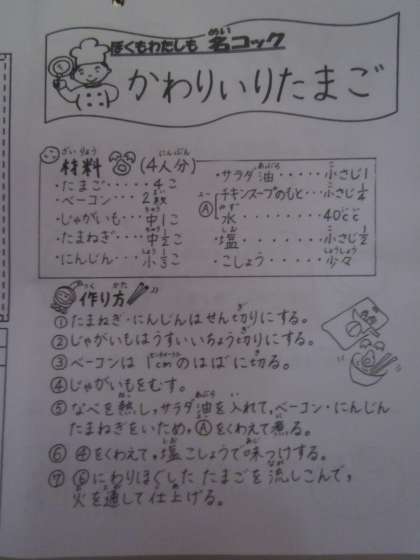 ぼくもわたしも 名コック
かわりいりたまご
材料 (4人分)
・たまご・・・・・4こ
・ベーコン・・・2枚
・じゃがいも・・・中1こ
・たまねぎ・・・中1/2こ
・にんじん・・・小1/3こ
・サラダ油・・・・・小さじ1
Ⓐ チキンスープのもと・・・小さじ1/4
水・・・・・・・・40cc
・塩・・・・・・・小さじ1/2
・こしょう・・・・・少々
作り方
①たまねぎ・にんじんはせん切りにする。
②じゃがいもはうすいいちょう切りにする。
③ベーコンは1cmのはばに切る。
④じゃがいもをむす。
⑤なべを熱し,サラダ油を入れて,ベーコン・にんじん
たまねぎをいため,Ⓐをくわえて煮る。
⑥④をくわえて,塩こしょうで味つけする。
⑦⑥にわりほぐした たまごを流しこんで,
火を通して仕上げる。